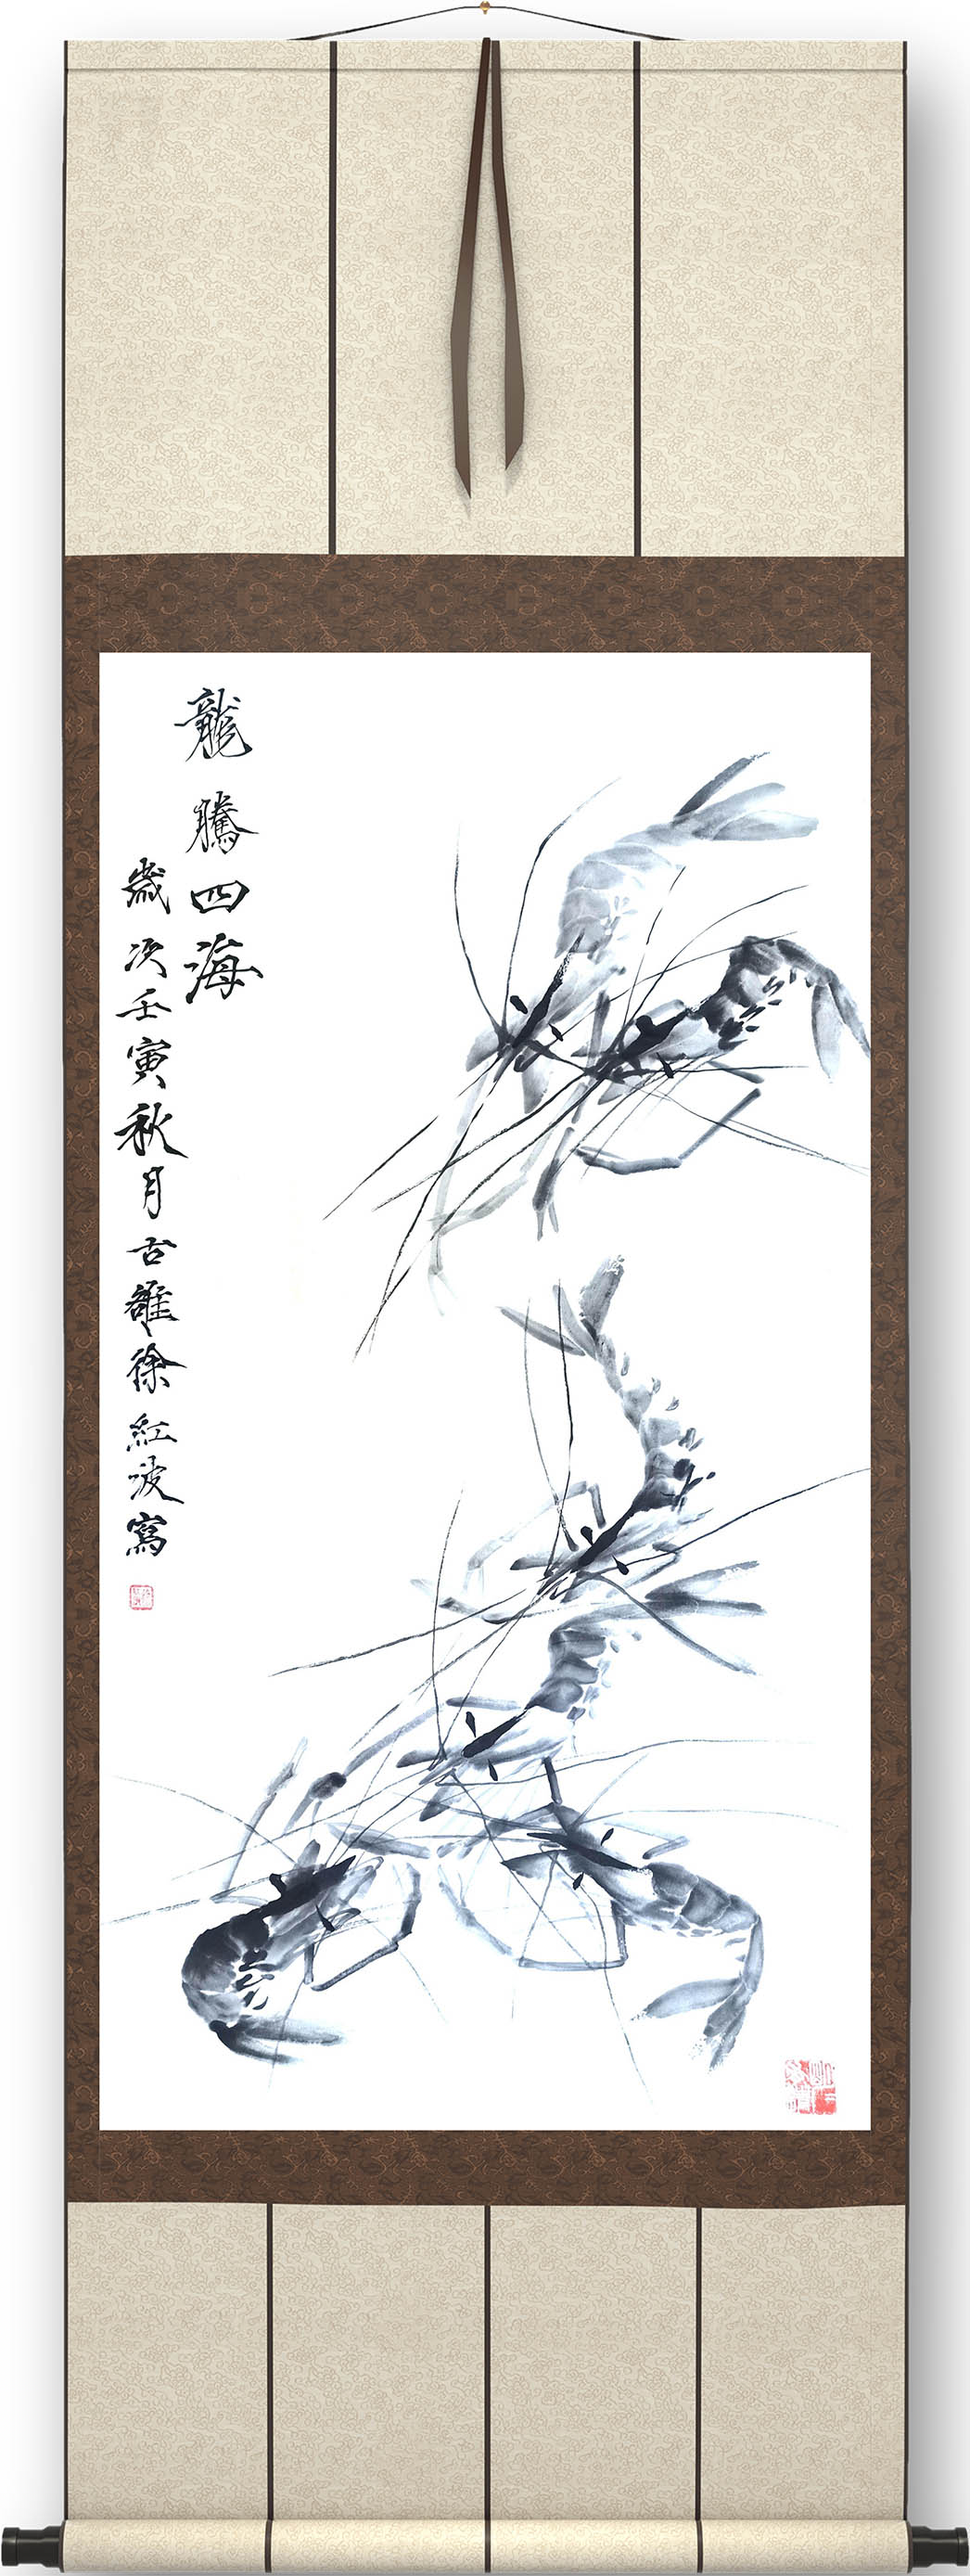 龍騰四海
歲次壬寅秋月古雒徐紅波寫